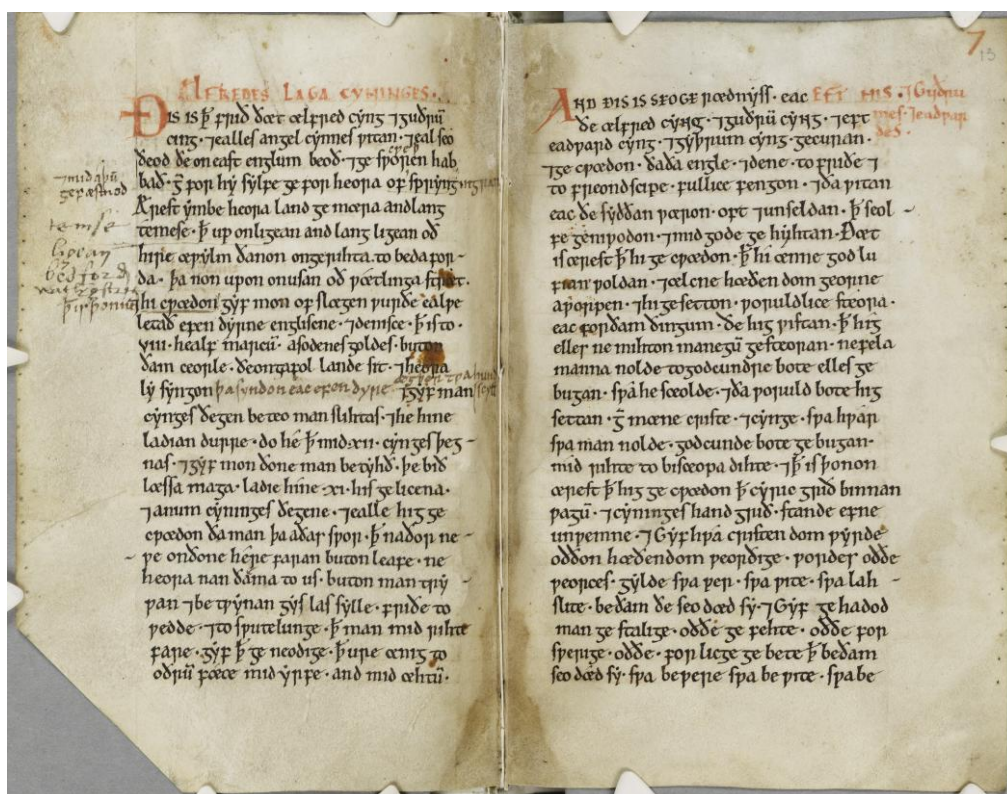 ÆLFREDES LAGA CYNINGES.
Ðis is ꝥ frið ðæt ælfred cyng ⁊ guðrū
cing. ⁊ ealles angel cynnes ƿitan. ⁊ eal seo
ðeod ðe on east englum beoð. ⁊ ge sƿoren hab
bað. ge for hy sylfe ge for heora of spryng
Ærest ymbe heora land ge mæra andlang
temese. ꝥ up on ligean and lang ligean oð
hire æƿylm ðanon on gerihta. to beda for
da. þa non upon on usan oð ƿætlinga stræt.
⁊ hi cƿædon gyf mon of slægen ƿurðe ealƿe
letað efen dyrne englisene. ⁊ denisce. ꝥ is to
VIII. healf marcū. asodenes goldes. buton
ðam ceorle. ðe on gafol lande sit. ⁊ heora
ly syngon þa syndon eac efen dyre
⁊ gyf man
cynges ðegen beteo man slihtas. ⁊ he hine
ladian durre. do he ꝥ mid. XII. cynges þeg
nas. ⁊ gyf mon ðone man betyhð. þe bið
læssa maga. ladie hine. XI. his gelicena.
⁊ anum cyninges ðegene. ⁊ ealle hig ge
cƿædon ða man þa aðas sƿor. ꝥ naðor ne
ƿe on ðone here faran buton leafe. ne
heora nan ðāma to us. buton man tryƿ
ƿan ⁊ be tƿynan gyslas sylle. friðe to
ƿedde. ⁊ to sƿutelunge. ꝥ man mid rihte
fare. gyf ꝥ ge neodige. ꝥ ure ænig to
oðrū fæce mid yrfe. and mid æhtū.
⁊ mid aþū
gefæstnod
temse
bedford
7
AND ÐIS IS SEO GE rædnyss. eac
EFT HIS. ⁊ Guðru
mes. ⁊ eadƿar
des.
ðe ælfred cyng. ⁊ guðrū cyng. ⁊ eft
eadƿard cyng. ⁊ gyþrum cyng. gecuran.
⁊ ge cƿædon. ðaða engle. ⁊ dene. to friðe ⁊
to freondscipe. fullice fengon. ⁊ ða ƿitan
eac ðe syððan ƿæron. oft ⁊ unseldan. ꝥ seol
fe geniƿodon. ⁊ mid gode ge hyhtan. Ðæt
is ærest ꝥ hi ge cƿædon. ꝥ hi ænne god lu
fian ƿoldan. ⁊ ælcne hæðen dom georne
aƿorpen. ⁊ hi ge setton. ƿoruldlice steora.
eac for ðam ðingum. ðe hig ƿistan. ꝥ hig
elles ne mihton manegū gesteoran. ne fela
manna nolde to godcundre bote elles ge
bugan. sƿa he sceolde. ⁊ ða ƿoruld bote hig
settan. ge mæne criste. ⁊ cynge. sƿa hƿar
sƿa man nolde. godcunde bote ge bugan.
mid rihte to bisceopa dihte. ⁊ ꝥ is þonon
ærest ꝥ hig ge cƿædon ꝥ cyric grið binnan
ƿagū. ⁊ cyninges hand grið. stande efne
unƿemme. ⁊ Gyf hƿa cristen dom ƿyrde
oððon hæðendom ƿeorðige. ƿordes oððe
ƿeorces. gylde sƿa ƿer. sƿa ƿite. sƿa lah
slite. be ðam ðe seo dæd sy. ⁊ Gyf ge hadod
man ge stalige. oððe ge feohte. oððe for
sƿerige. oððe. for licge ge bete ꝥ be ðam
seo dæd sy. sƿa be ƿere sƿa be ƿite. sƿa be